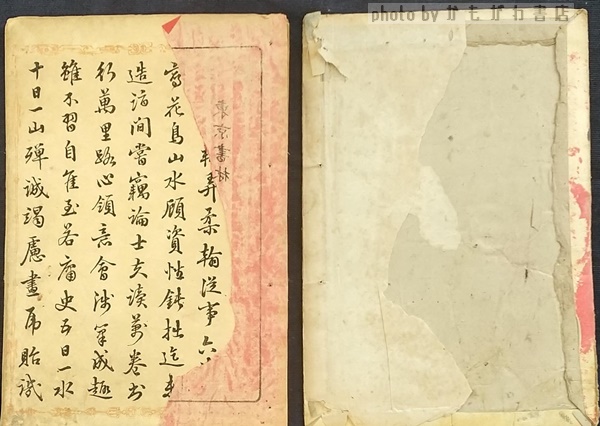 photo by かもがわ書店
東京書林
弄柔翰從事六
寫花鳥山水顧資性鈍拙迄未
造詣間嘗竊論士夫讀萬卷書
行萬里路心領意會涉筆成趣
雖不習自佳至若庸史五日一水
十日一山殫誠竭慮畫虎貽譏